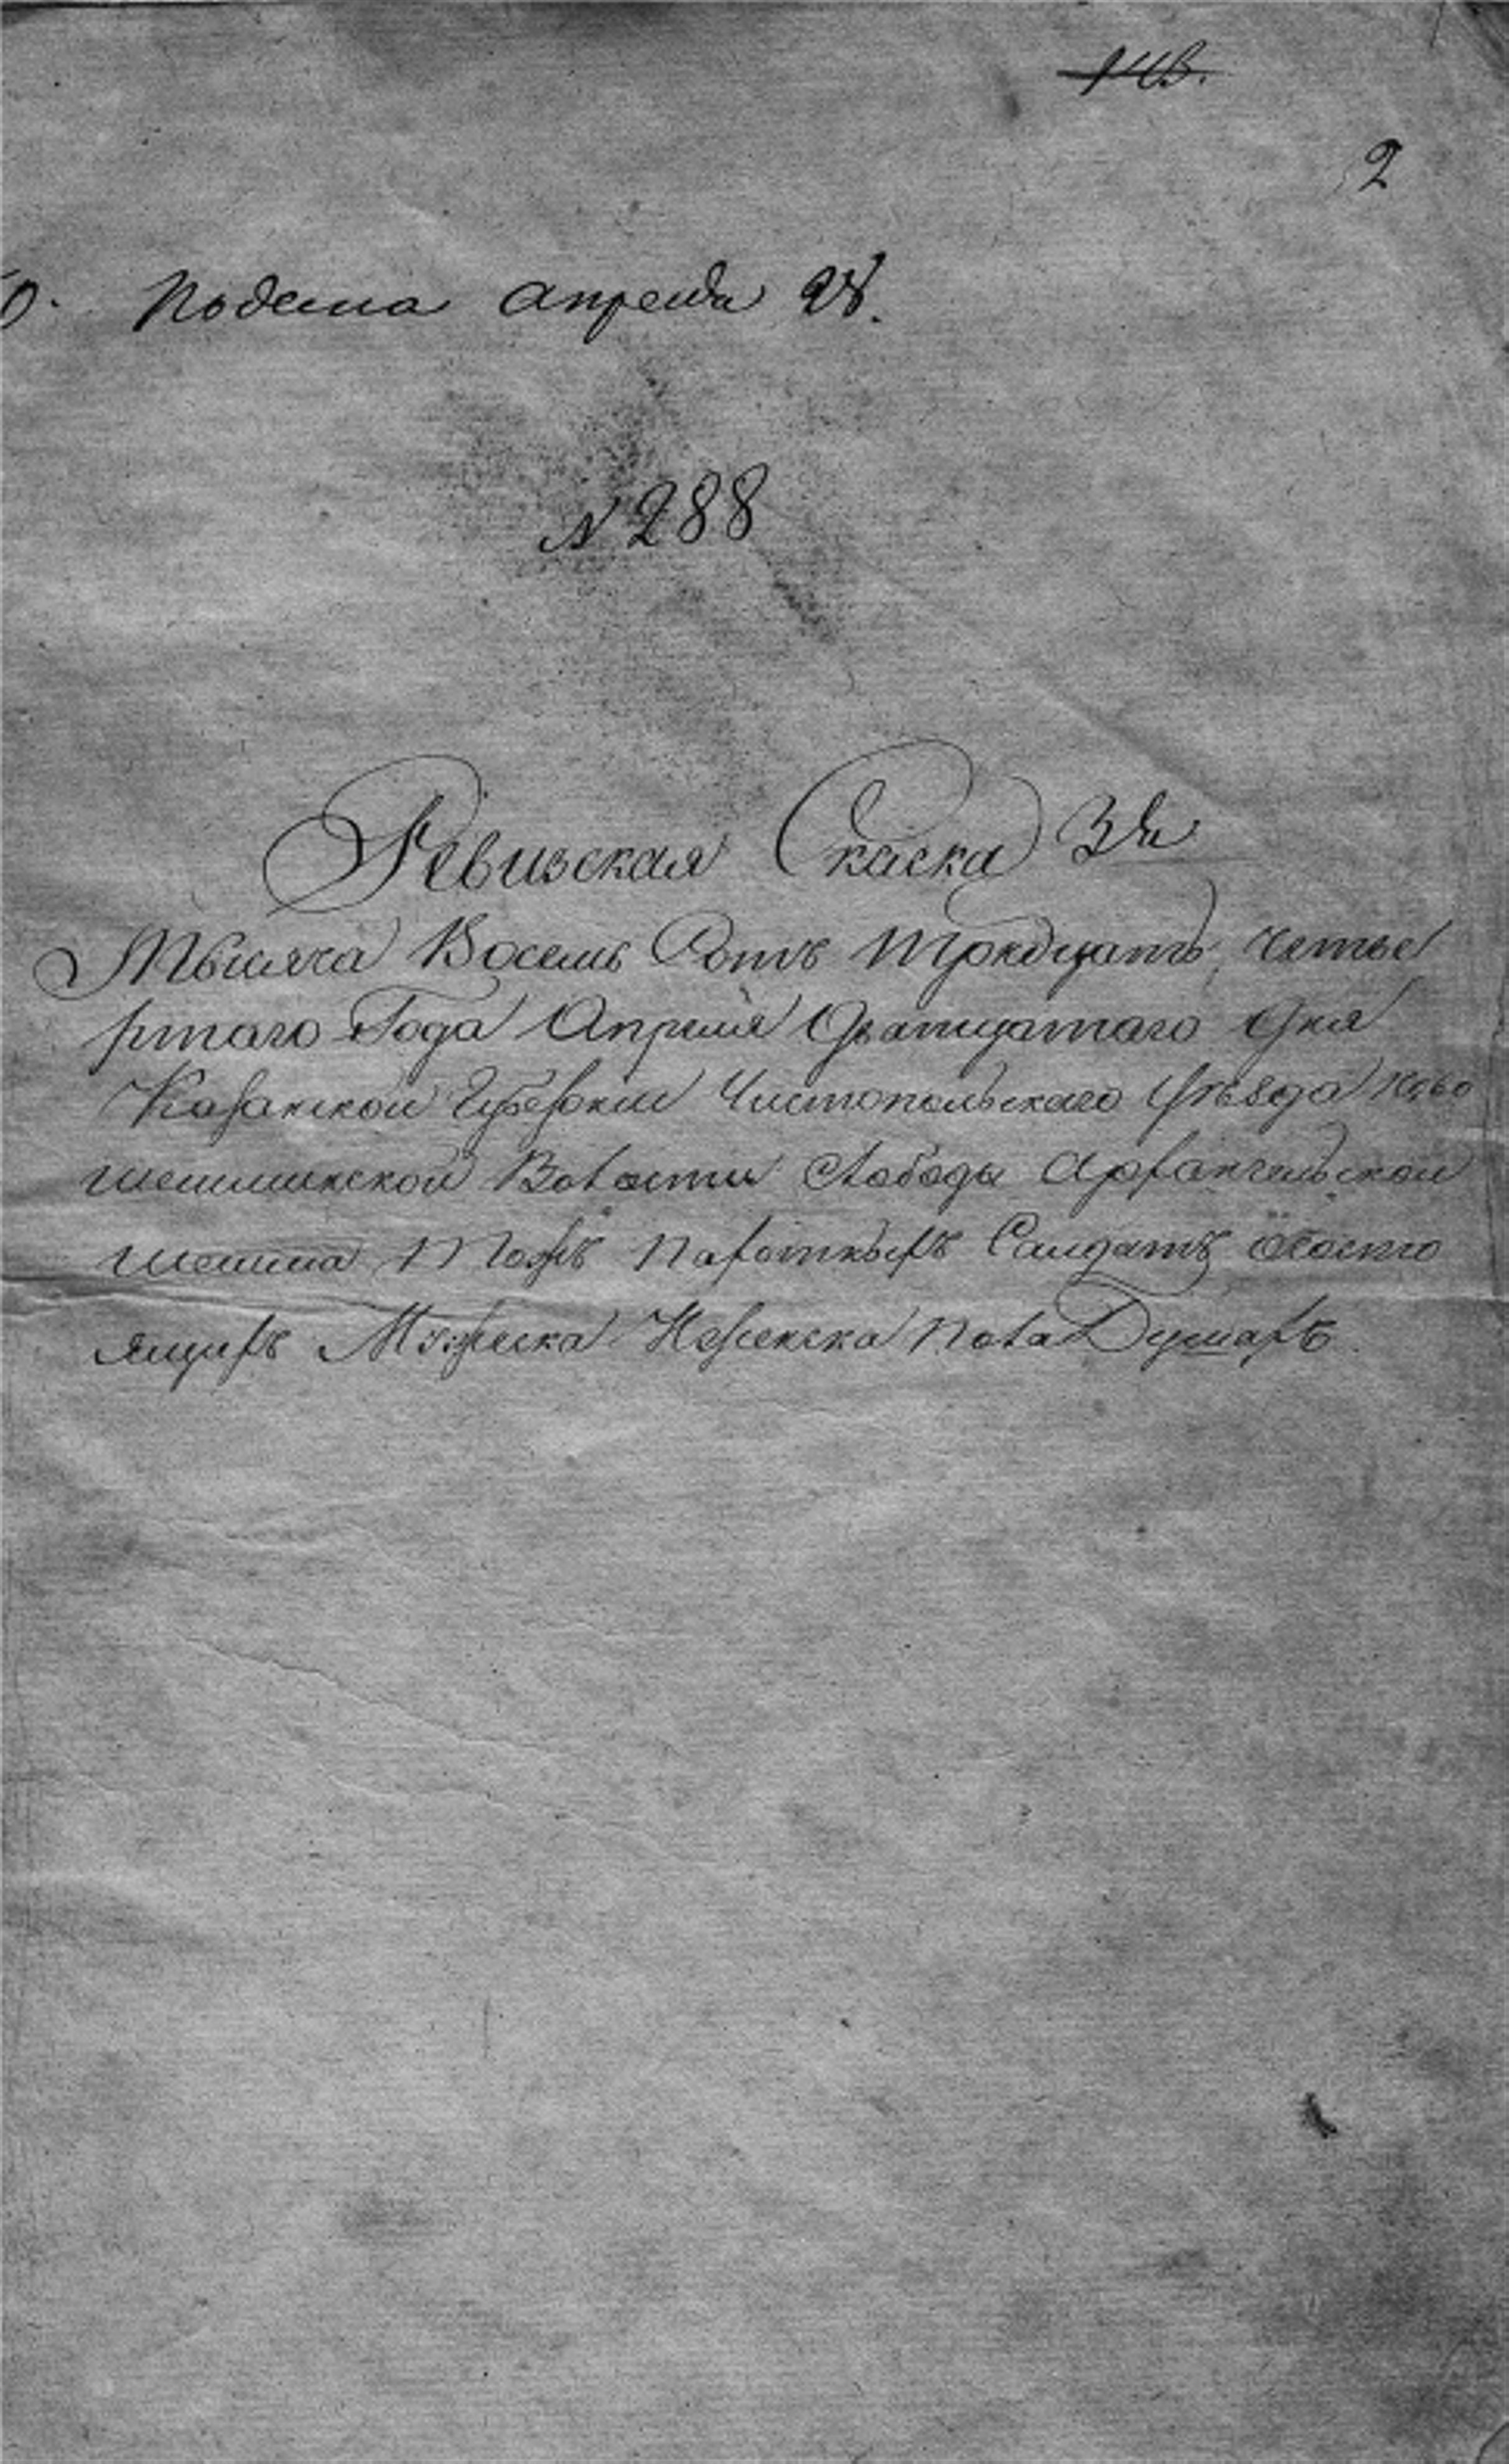 2
Подана апреля 28.
N 288
Ревизская Скаска
Тысяча Восемь Сотъ Тридцать четве
ртаго Года Апреля Дватцатаго дня
Казанской Губернии Чистопольскаго Уѣзда ново
шешминской Волости Слободы Архангельской
шешма Пахотныхъ Салдатъ
ящихъ Мужеска Иженска Пола Душахъ